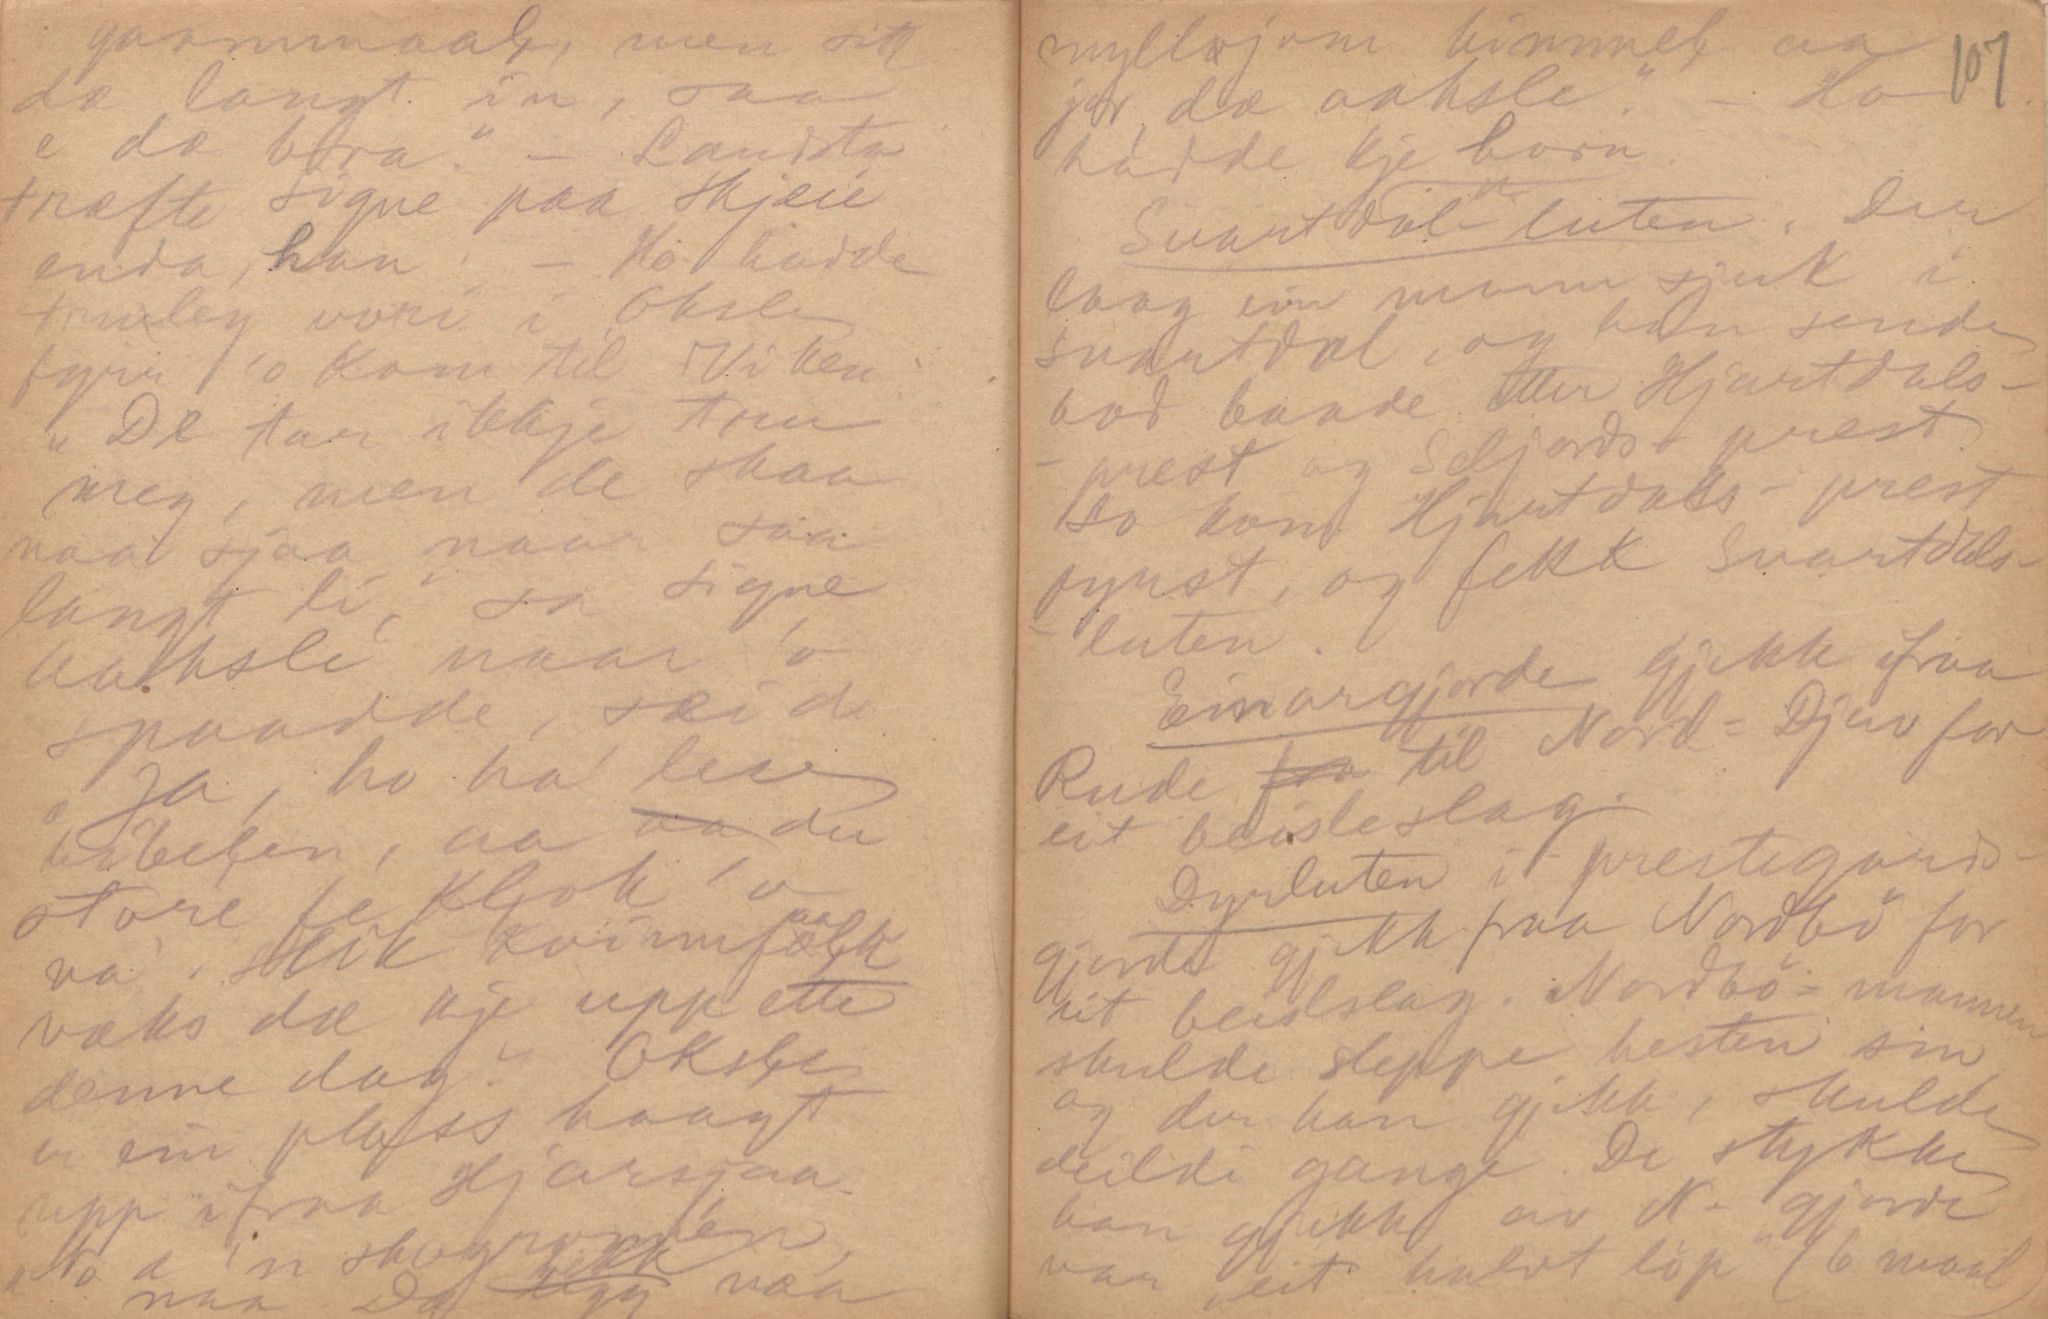 gammaalt, men sit
dæ langt in, saa
e dæ bera." — Landsta
træfte Signe paa Skjæie
enda, han! — Ho hadde
truleg vori i Oksle
fyrr 'o kom til Viken.
"De tar ikkje tru
meg, men de skaa
naa sjaa naar saa
langt li", sa Signe
Aakslé naar 'o
spaadde, sei de
"Ja, ho ha lese
bibelen, aa den
store fe kljok 'o
va. Slik kvinnfaalk
væks dæ kje upp ette
denne dag." Oksle
er ein plass haagt
upp ifraa Hjarsjaa
naa. Dæ vekk vaa
107
himmel aa
jor, dæ aaksle." — Ho
hadde kje born.
Svartdal-luten. Der
laag ein mann sjuk i
Svartdal, og han sende
bod baade etter Hjartdals-
-prest og Seljords-prest
So kom Hjartdals-prest
fyrst, og fekk Svartdals-
-luten.
Einargjorde gjekk ifraa
Rude fra til Nord-Djuv for
eit beisleslag.
Dyrluten i prestegards-
gjorde gjekk fraa Nordbö for
eit beidslag. Nordbö-mannen
skulde sleppe hesten sin
og der han gjekk, skulde
deildi gange. De stykke
han gjekk av N- gjorde
var "eit halvt löp" (6 maal)